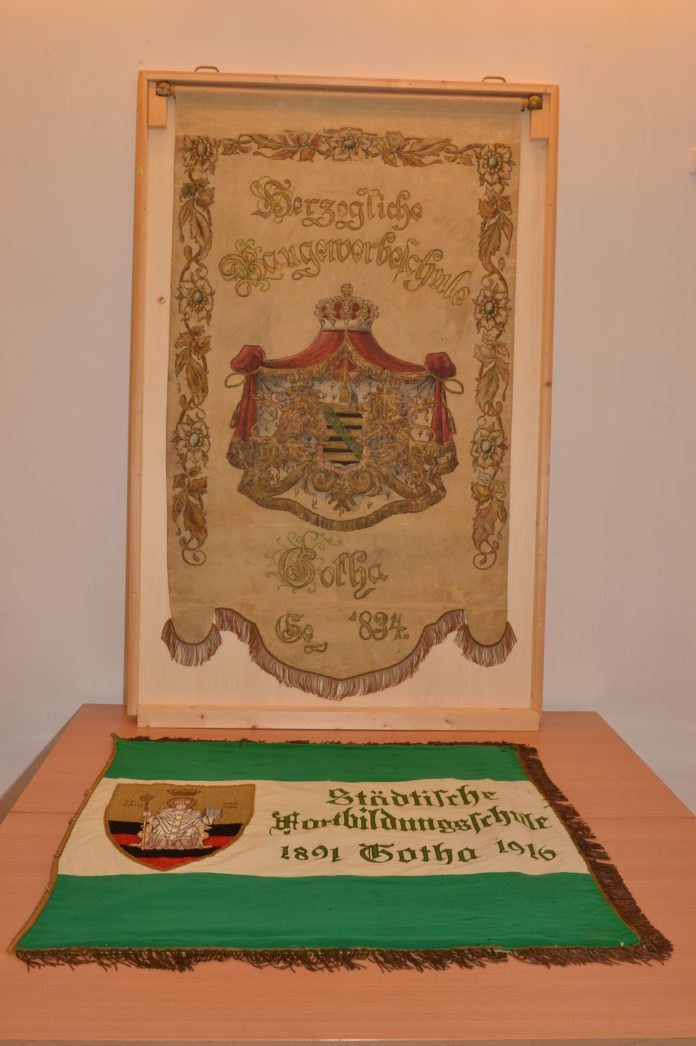 Herzogliche
Baugewerbeschule
Gotha
Ge 1834.
Städtische
Fortbildungsschule
1891 Gotha 1916